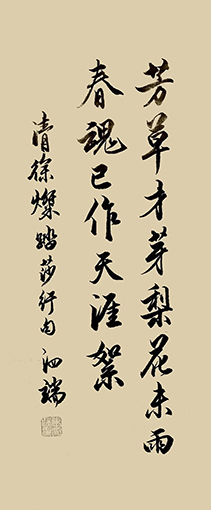 芳草才芽梨花未雨
春魂已作天涯絮
清徐燦踏莎行句 泗端